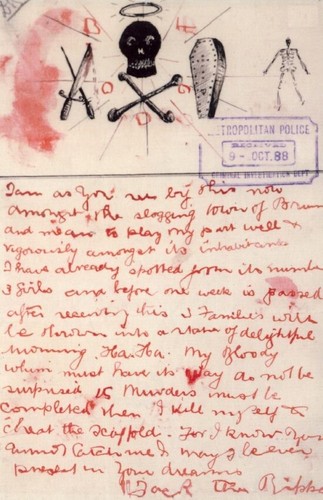 METROPOLITAN POLICE
RECEIVED
9 - OCT. 88
CRIMINAL INVESTIGATION DEPT
I am as you see by this now
amongst the slogging town of Brum
and mean to play my part well &
vigorously amongst its inhabitants
I have already spotted from its number
3 girls and before one week is passed
after receiving this 3 Families will
be thrown into a state of delightful
mourning. Ha. Ha. My Bloody
whim must have its way do not be
surprised 15 Murders must be
completed then I kill myself to
cheat the scaffold. For I know you
cannot catch me & I may be even
present in your dreams
Jack the Ripper